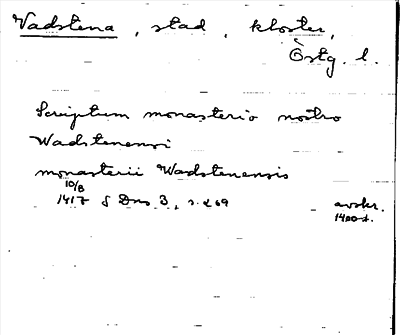 Vadstena, stad, kloster,
Östg. l.
Scriptum monasterio nostro
Wadstenensi
monasterii Wadstenensis
10/8
1417 S Dns 3, s. 269 avskr.
1400-t.